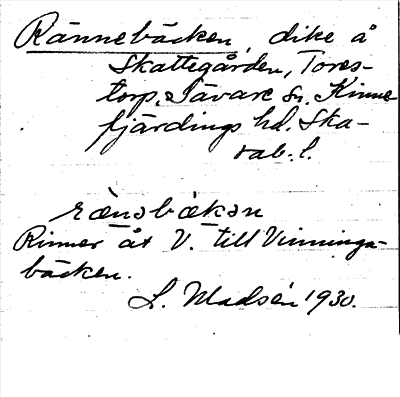 Rännebäcken, dike å
Skattegården, Tores-
torp, Sävare sn. Kinne
fjärdings hd. Ska-
rab. l.
rænəbækən
Rinner åt V. till Vinninga-
bäcken.
L. Madsén 1930.